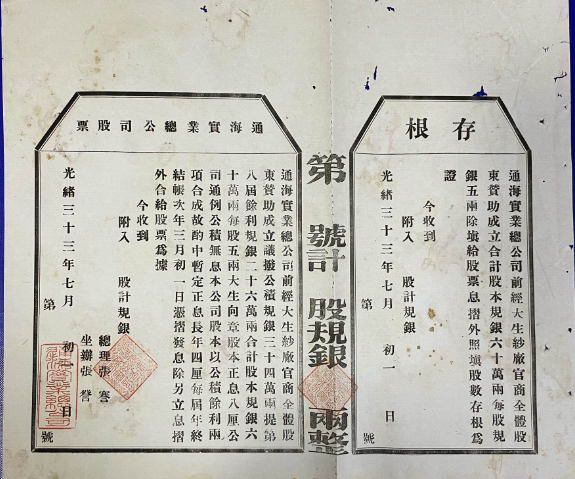 存根
通海實業總公司前經大生紗廠官商全體股
東贊助成立合計股本規銀六十萬兩每股規
銀五兩除塡給股票息摺外照塡股數存根爲
證
今收到
附入　股計規銀
光緒三十三年七月　初一　日
第　號
第　號計　股規銀　兩整
通海實業總公司股票
通海實業總公司前經大生紗廠官商全體股
東贊助成立議撥公積規銀三十四萬兩提第
八屆餘利規銀二十六萬兩合計股本規銀六
十萬兩每股五兩大生向章股本正息八厘公
司通例公積無息本公司股本以公積餘利兩
項合成故酌中暫定正息長年四厘每屆年終
結帳次年三月初一日憑摺發息除另立息摺
外合給股票爲據
今收到
附入　股計規銀
總理張謇
坐辦張詧
光緒三十三年七月　初　日
第　號